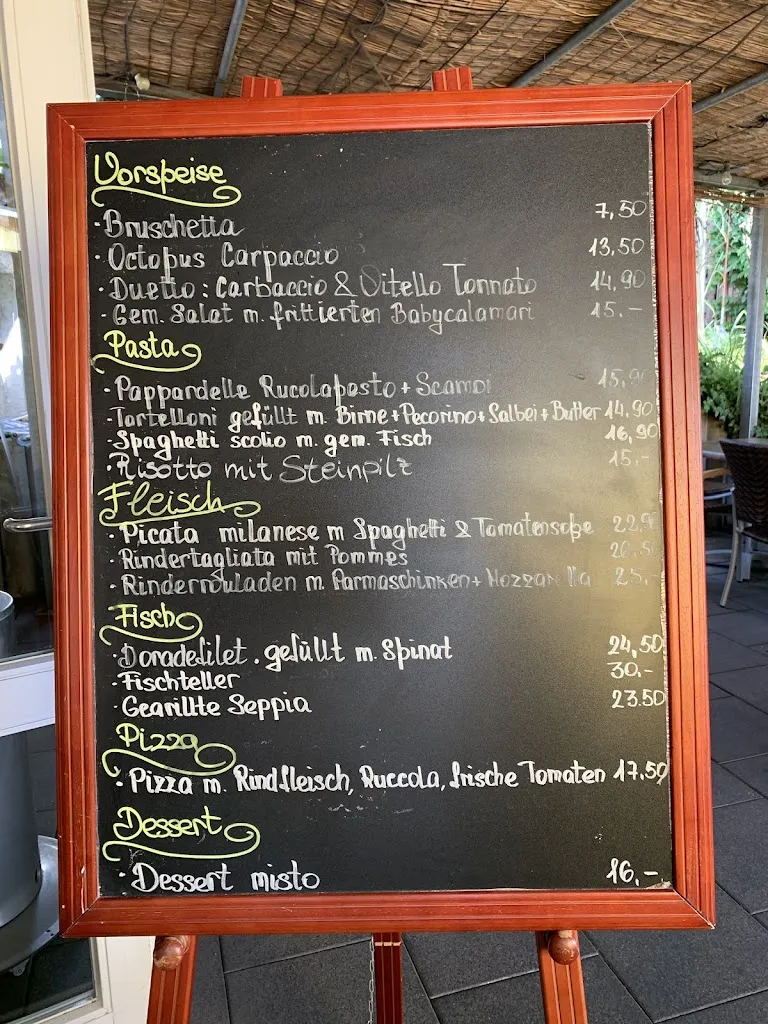 Vorspeise
· Bruschetta 7,50
· Octopus Carpaccio 13,50
· Duetto: Carbaccio & Vitello Tonnato 14,90
· Gem. Salat m. frittierten Babycalamari 15.-
Pasta
· Pappardelle Rucolapesto + Scampi 15,90
· Tortelloni gefüllt m. Birne + Pecorino + Salbei + Butter 14.90
· Spaghetti scolio m. gem. Fisch 16,90
· Risotto mit Steinpilz 15.-
Fleisch
· Picata milanese m Spaghetti & Tomatensoße
· Rindertagliata mit Pommes
· Rinderrouladen m. Parmaschinken + Mozzarella 25,-
Fisch
· Doradefilet . gefüllt m. Spinat 24,50
· Fischteller 30.-
· Gearillte Seppia 23.50
Pizza
· Pizza m. Rindfleisch, Ruccola, frische Tomaten 17.50
Dessert
· Dessert misto 16,-